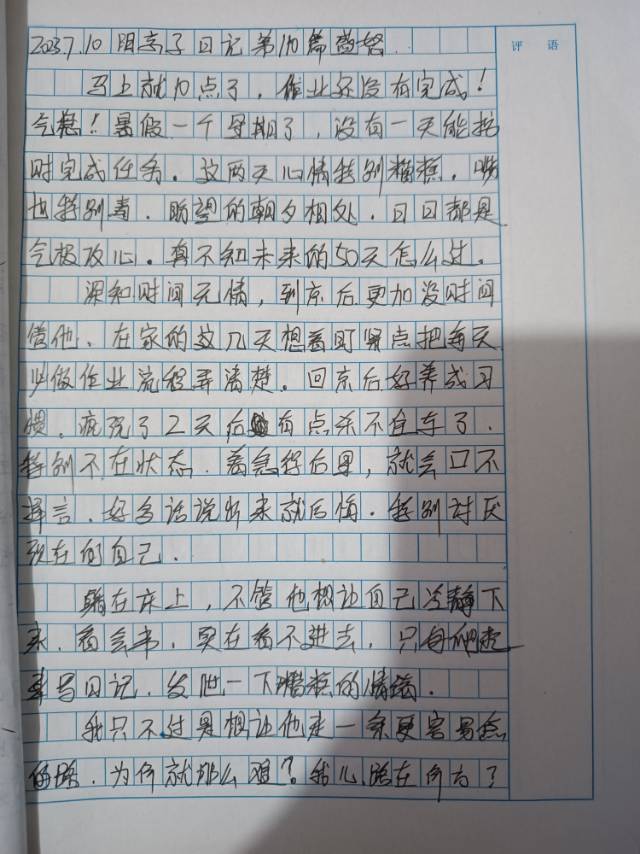 2023.7.10 阴 亲子日记 第10篇 愤怒
评 语
马上就10点了，作业还没有完成！
气愁！暑假一个星期了，没有一天能按
时完成任务。这两天心情特别糟糕，嗓
也特别毒。盼望的朝夕相处，日日都是
气极攻心。真不知未来的50天怎么过。
深知时间无情，到京后更加没时间
管他。在家的这几天想着盯紧点把每天
必做作业流程弄清楚。回京后好养成习
惯。疯玩了2天后有点杀不住车了。
特别不在状态。着急程后果，就会口不
择言。好多话说出来就后悔。特别讨厌
现在的自己。
躺在床上，不管他想让自己冷静下
来。看会书，实在看不进去，只有爬起
来写日记，发泄一下糟糕的情绪。
我只不过是想让他走一条更容易些
的路。为何就那么难？我儿路在何方了